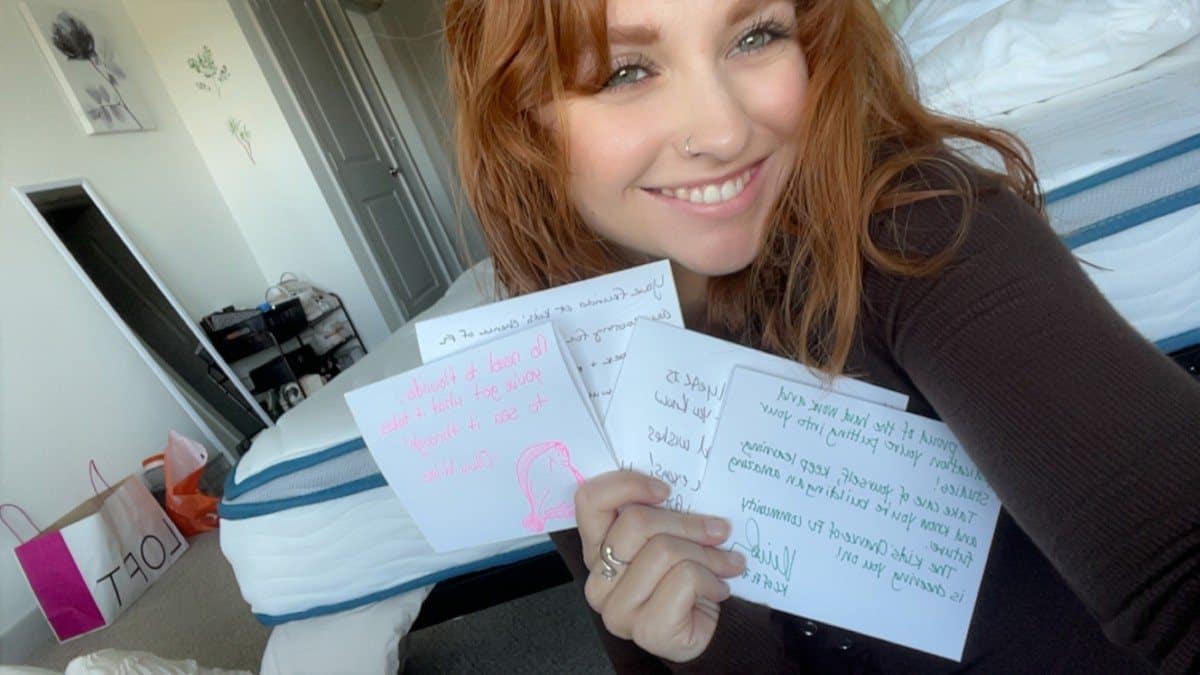 Your Friends at Kids' Chance of PA
are rooting for
No need to flounder,
you've got what it takes
to sea it through!
you know
wishes
exams!
proud of the hard work and
dedication you're putting into your
studies!
Take care of yourself, keep learning
and know you're building an amazing
future.
The Kids Chance of PA community
is cheering you on!
LOFT